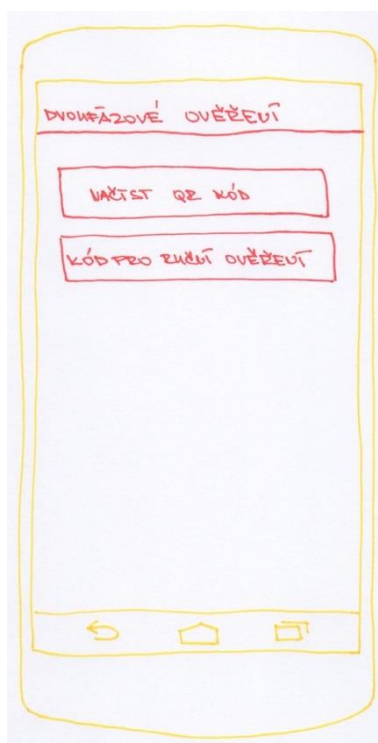 DVOUFÁZOVÉ OVĚŘENÍ
NAČÍST QR KÓD
KÓD PRO RUČNÍ OVĚŘENÍ